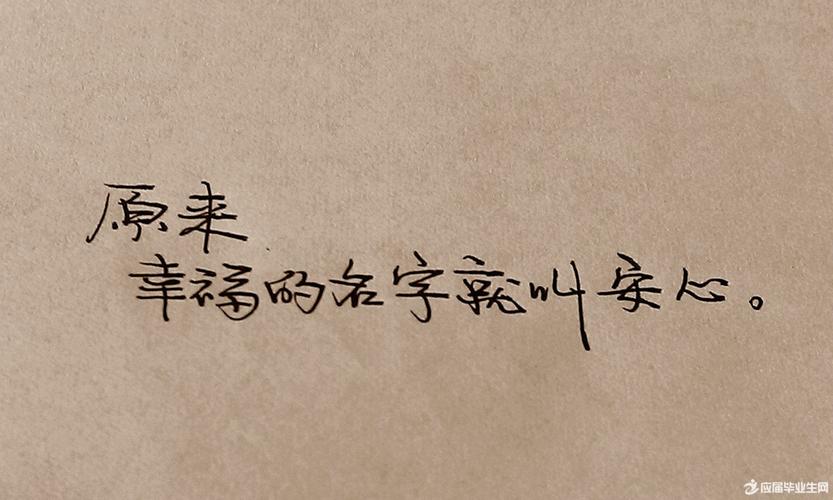 原来
幸福的名字就叫安心。
应届毕业生网